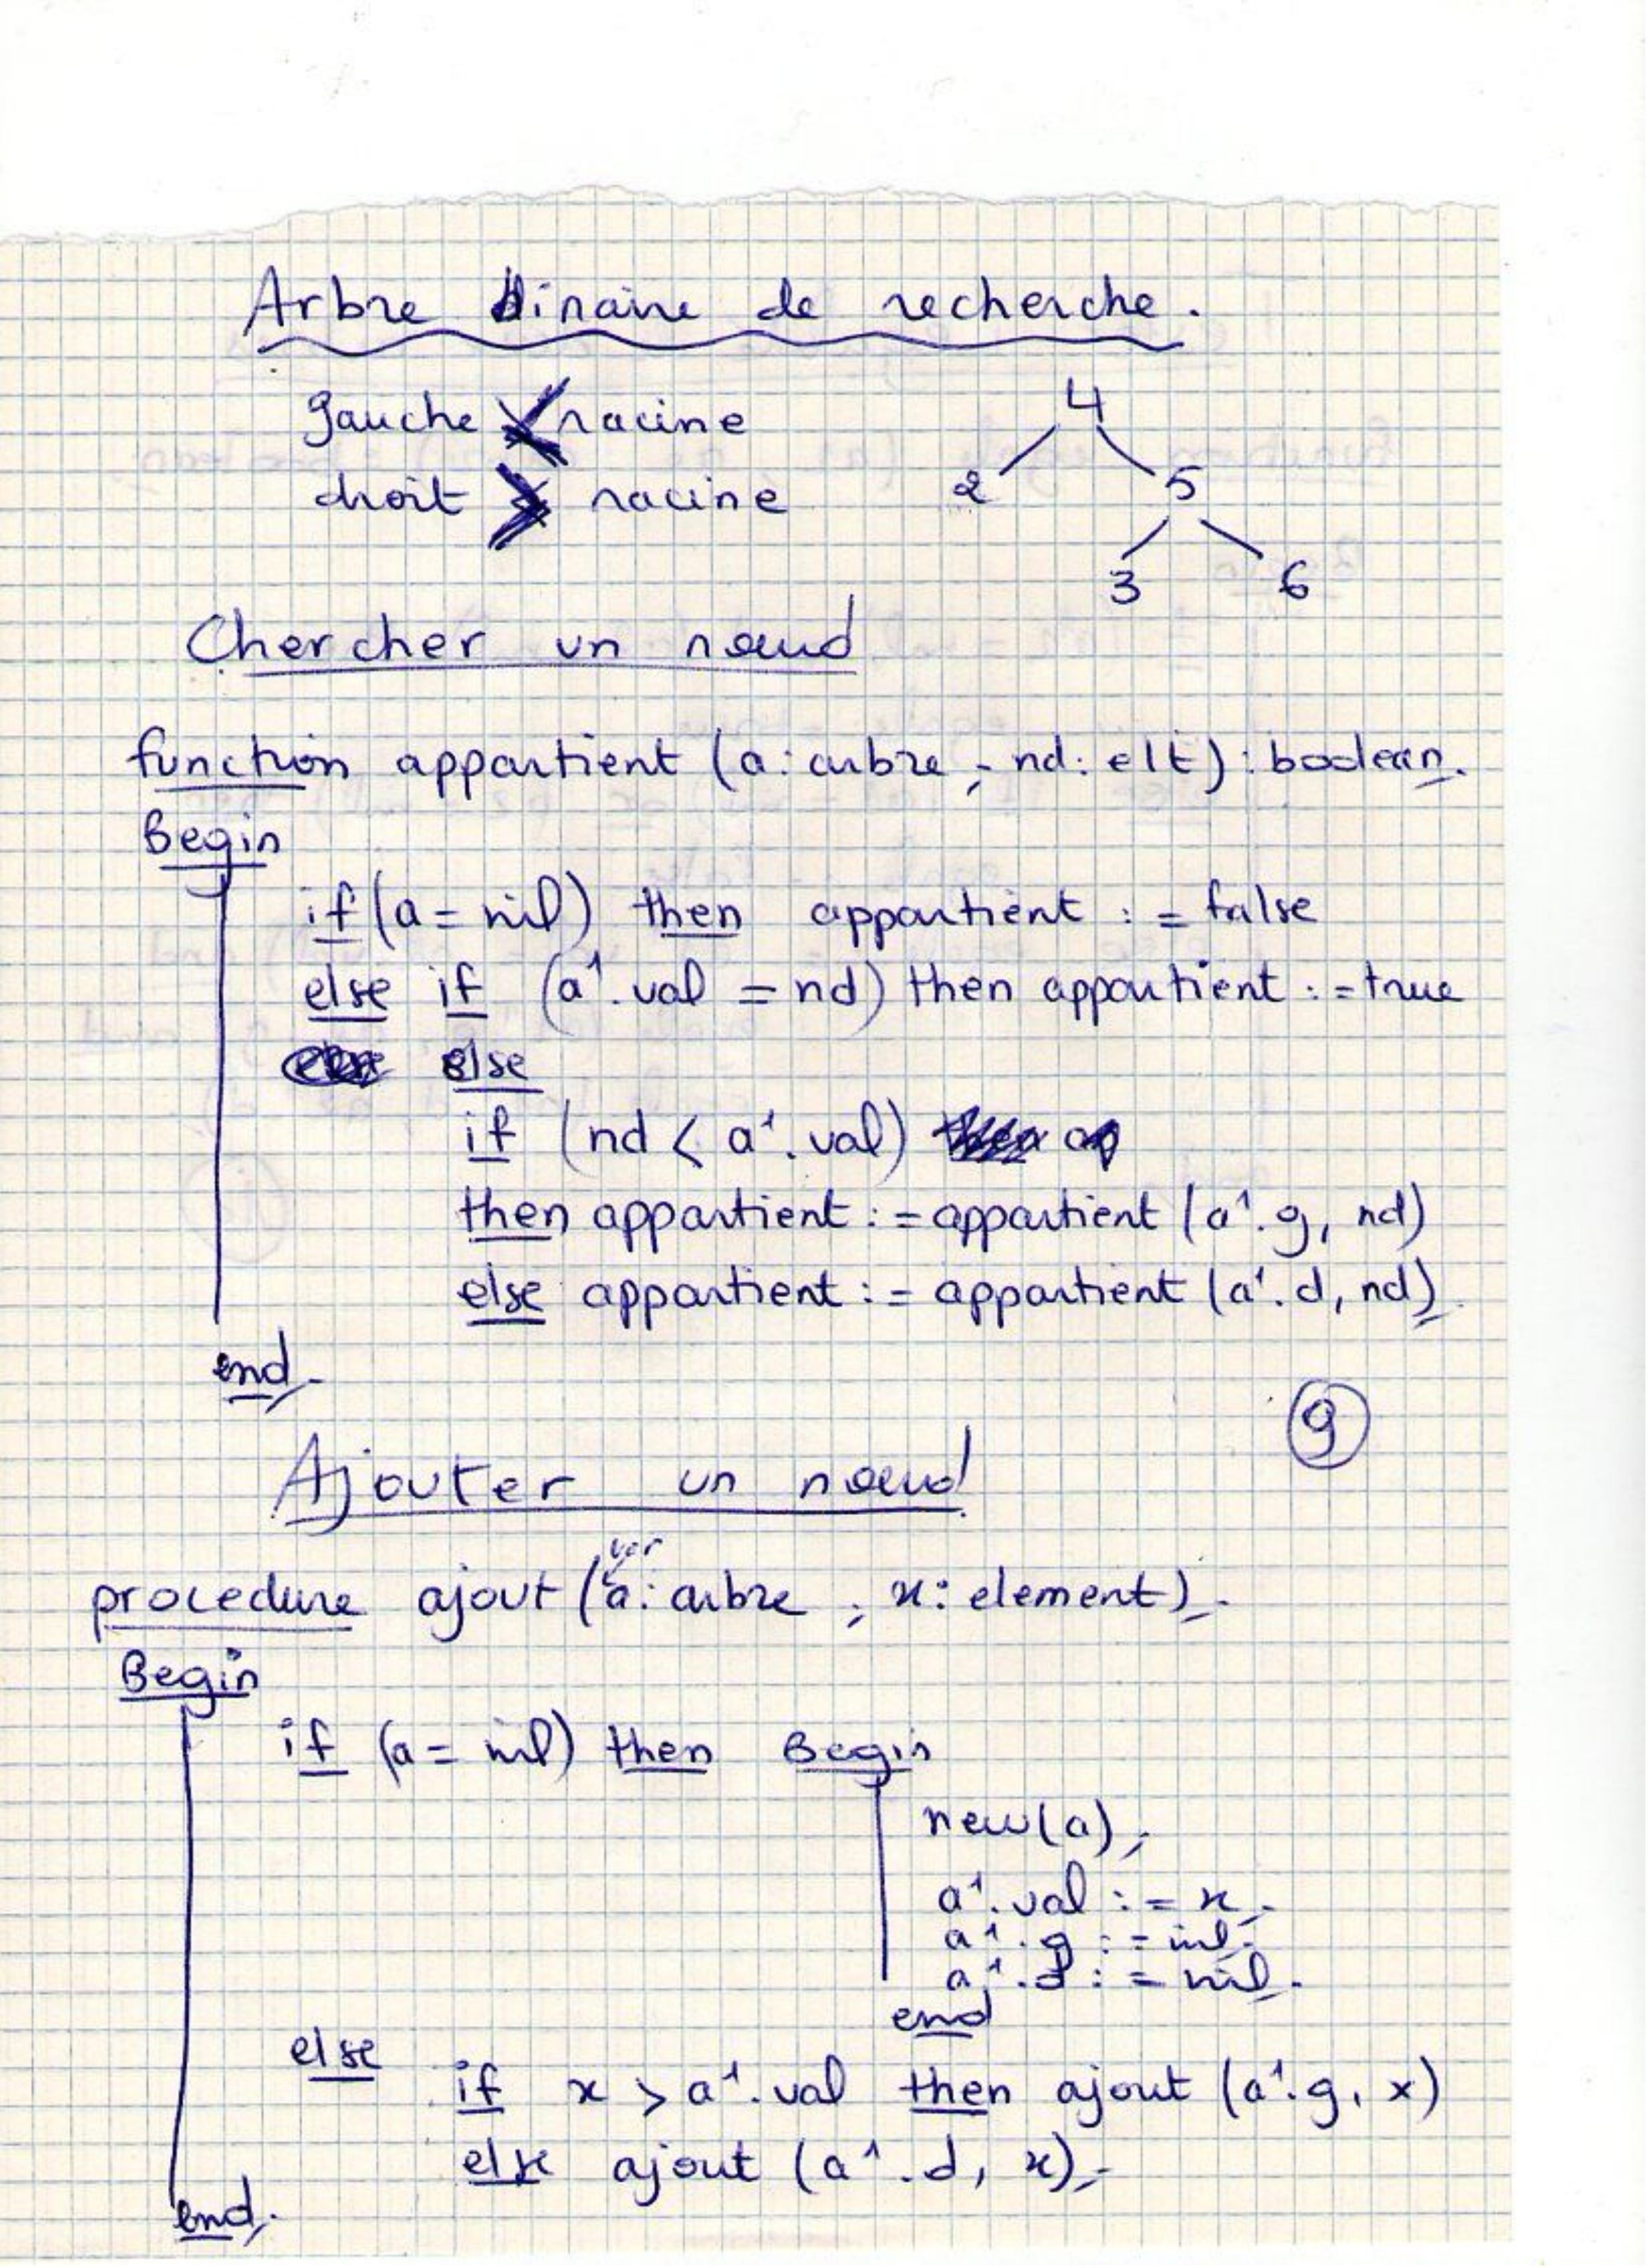 Arbre binaire de recherche.
gauche < racine
droit > racine
4
2 5
3 6
Chercher un nœud
function appartient (a: arbre ; nd: elt) : boolean;
Begin
if (a = nil) then appartient := false
else if (a^.val = nd) then appartient := true
else
if (nd < a^.val)
then appartient := appartient (a^.g, nd)
else appartient := appartient (a^.d, nd);
end;
9
Ajouter un nœud
var
procedure ajout (a: arbre ; x: element);
Begin
if (a = nil) then Begin
new(a);
a^.val := x;
a^.g := nil;
a^.d := nil;
end
else
if x > a^.val then ajout (a^.g, x)
else ajout (a^.d, x);
end;